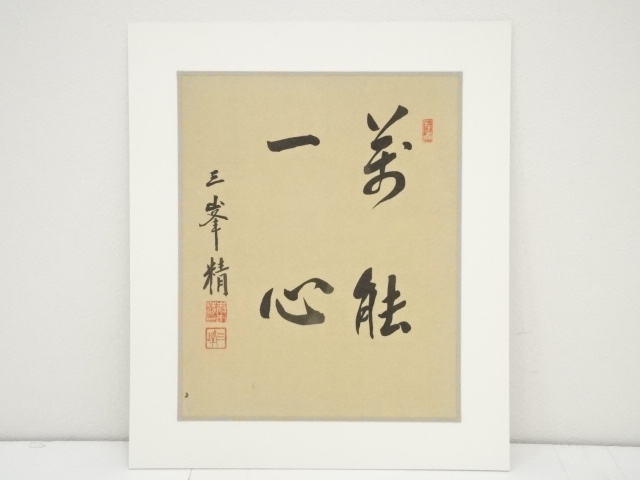 萬能
一心
三峯精